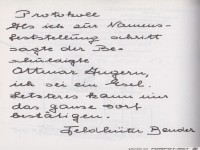 Protokoll
Als ich zur Namens-
feststellung schritt
sagte der Be-
schuldigte
Ottmar Angern,
ich sei ein Esel.
Letzteres kann nur
das ganze Dorf
bestätigen.
Feldhüter Bender